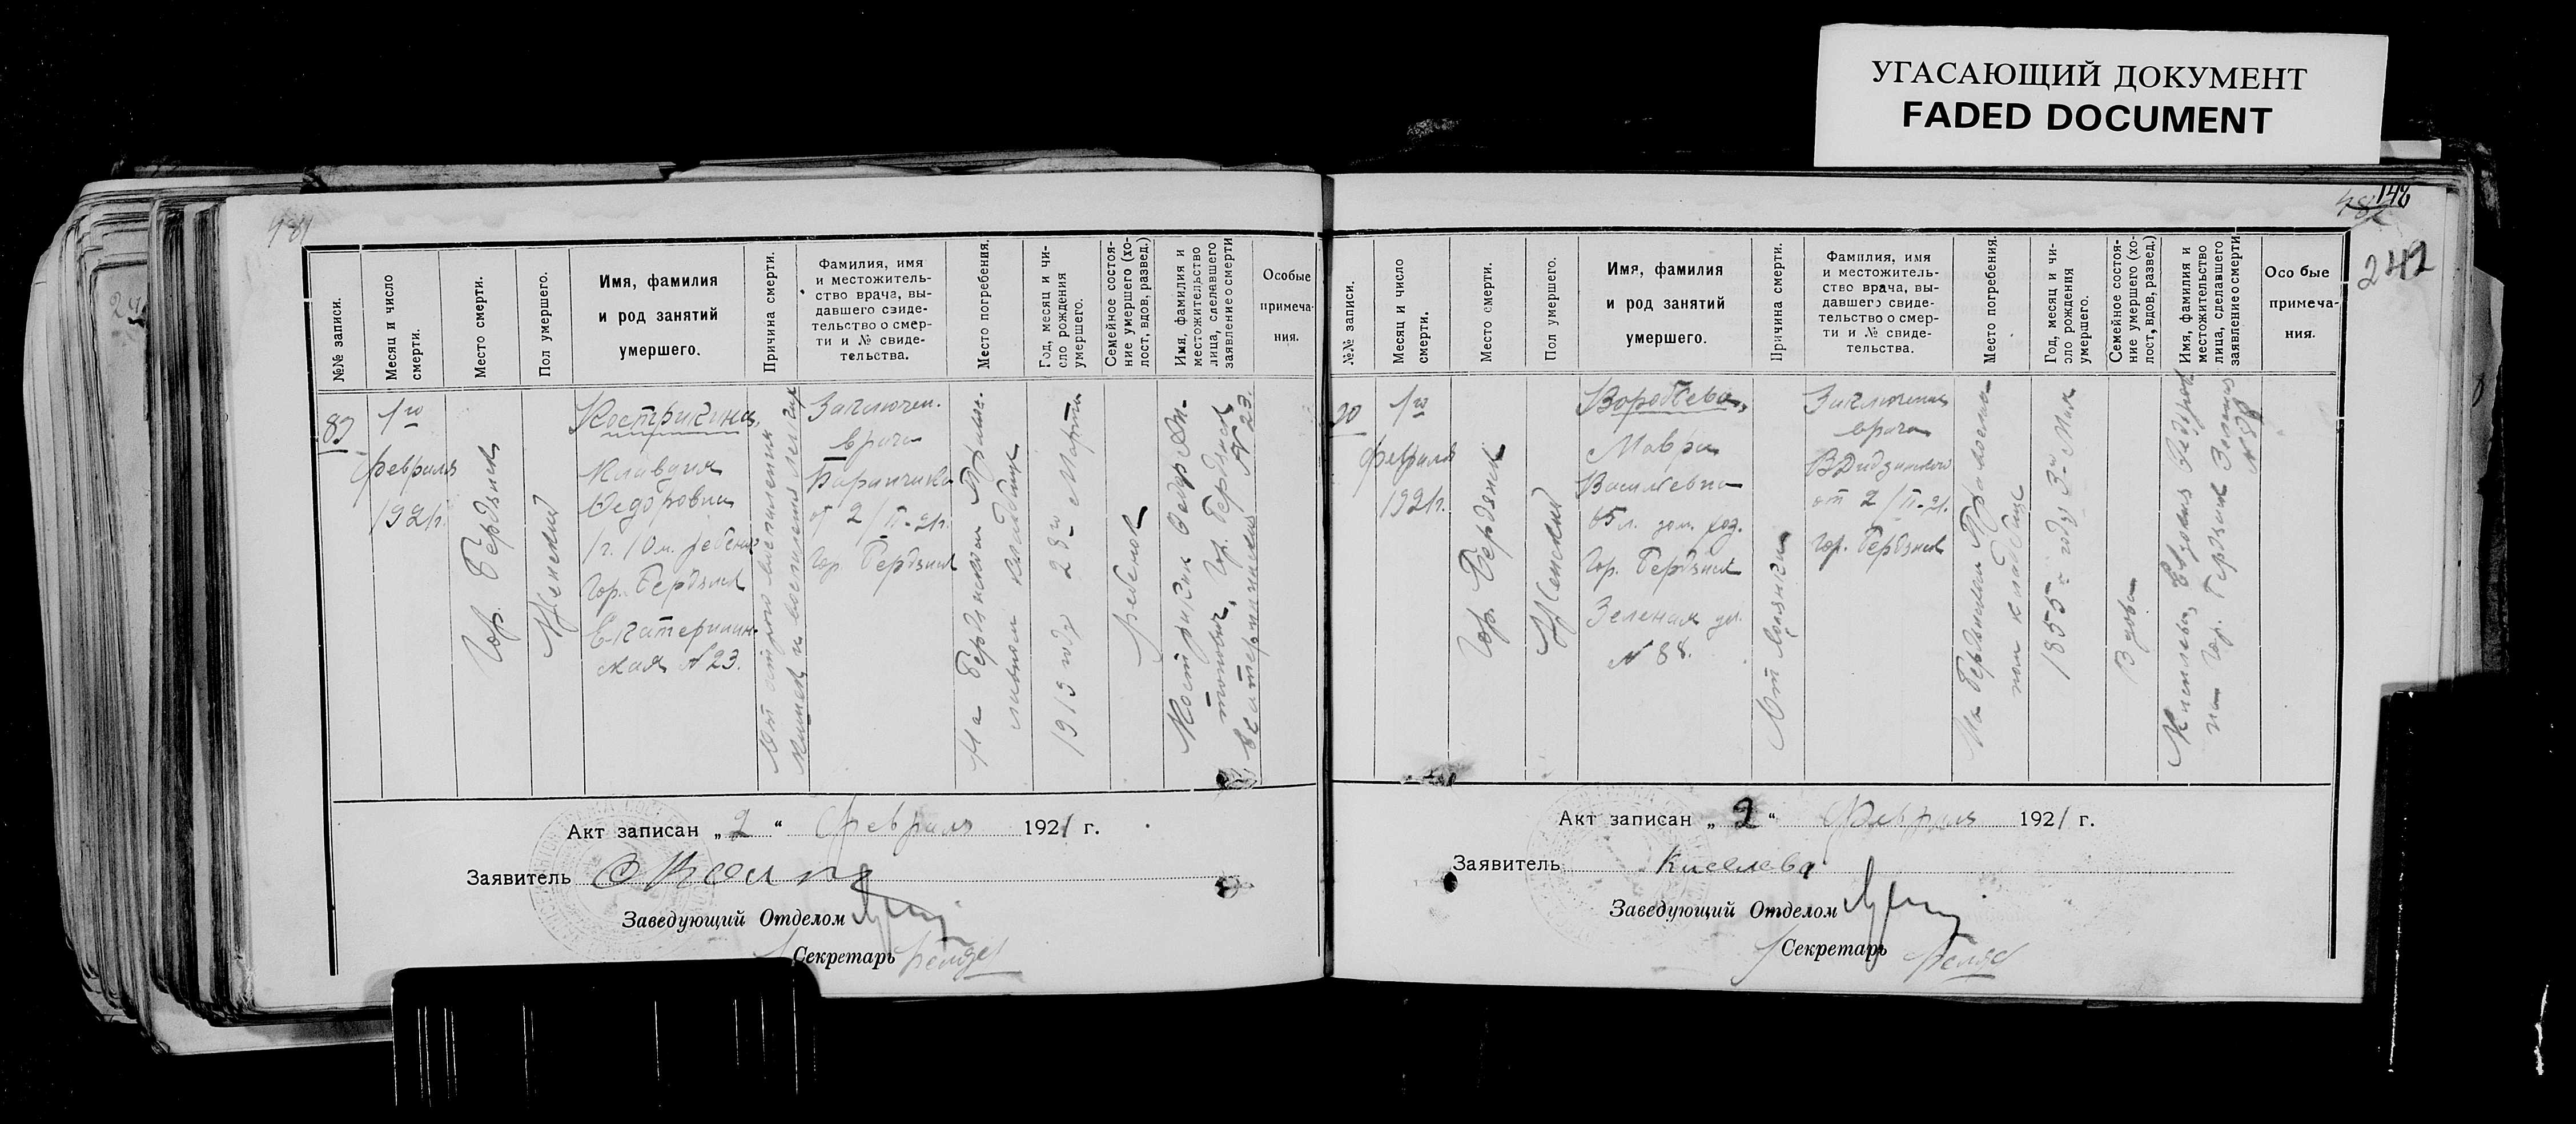 УГАСАЮЩИЙ ДОКУМЕНТ
FADED DOCUMENT
481
№№ записи.
Месяц и число
смерти.
Место смерти.
Пол умершего.
Имя, фамилия
и род занятий
умершего.
Причина смерти.
Фамилия, имя
и местожитель-
ство врача, вы-
давшего свиде-
тельство о смер-
ти и № свиде-
тельства.
Место погребения.
Год, месяц и чи-
сло рождения
умершего.
Семейное состоя-
ние умершего (хо-
лост, вдов, развед.)
Имя, фамилия и
местожительство
лица, сделавшего
заявление о смерти
Особые
примеча-
ния.
89
1го
февраля
1921г.
Гор. Бердянск
Женский
Кострикина,
Клавдия
Федоровна
1г. 10м. ребенок
Гор. Бердянск
Екатеринин-
ская №23.
От острого воспаления
кишек и воспаления легких
Заключен.
врача
от 2/II-21г.
Гор. Бердянск
На Бердянском Право-
славном кладбище
1919 году 28го Марта
Ребенок
Кострикин Федор Ан-
тонович, Гор. Бердянск
Екатерининская №23.
Акт записан „2“ Февраля 1921 г.
Заявитель
Заведующий Отделом
Секретарь
148
482
242
№№ записи.
Месяц и число
смерти.
Место смерти.
Пол умершего.
Имя, фамилия
и род занятий
умершего.
Причина смерти.
Фамилия, имя
и местожитель-
ство врача, вы-
давшего свиде-
тельство о смер-
ти и № свиде-
тельства.
Место погребения.
Год, месяц и чи-
сло рождения
умершего.
Семейное состоя-
ние умершего (хо-
лост, вдов, развед.)
Имя, фамилия и
местожительство
лица, сделавшего
заявление о смерти
Особые
примеча-
ния.
90
1го
февраля
1921г.
Гор. Бердянск
Женский
Воробьева,
Мавра
Васильевна
65л. дом. хоз.
Гор. Бердянск
Зеленая ул.
№ 88.
От
Заключение
врача
от 2/II-21.
Гор. Бердянск
На Бердянском Православ-
ном кладбище
1855 году 3го Мая
Вдова
Киселева, Евдокия
Гор. Бердянск Зеленая
№ 88
Акт записан „2“ Февраля 1921 г.
Заявитель Киселева
Заведующий Отделом
Секретарь